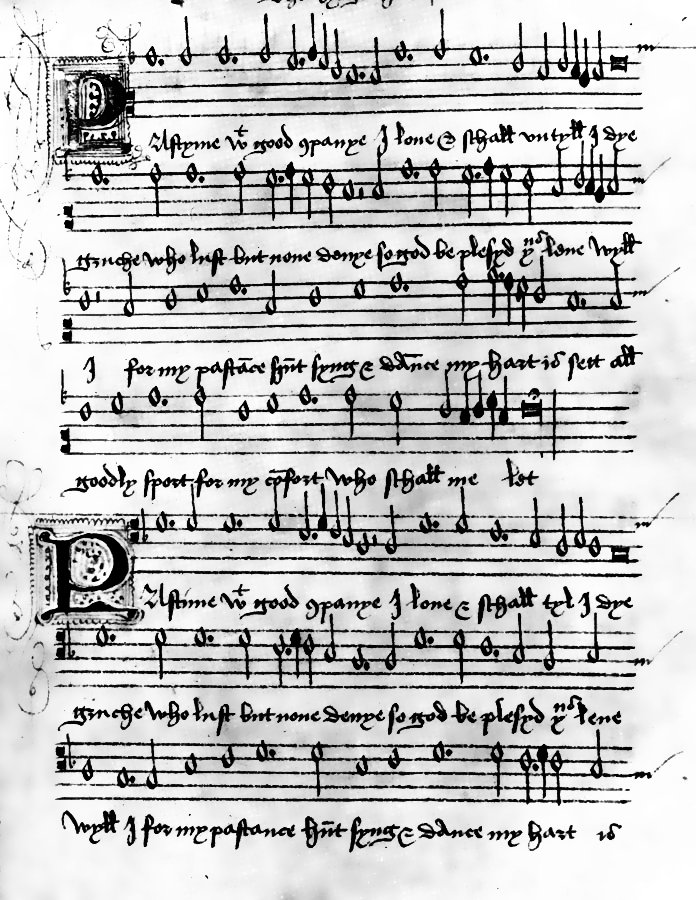 PAstyme wt good 9panye I loue & schall vntyll I dye
gruche who lust but none denye so god be plesyd yus leue wyll
I for my pastāce hūt syng & dānce my hart is sett all
goodly sport for my cōfort who schall me let
PAstime wt good 9panye I loue & schall tyl I dye
gruche who lust but none denye so god be plesyd yus leue
wyll I for my pastance hūt syng & dānce my hart is